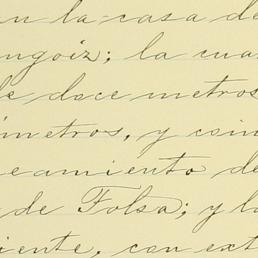 en la casa de
angoiz; la cua
de doce metros
ímetros, y coin
eamiento de
de Folsa; y la
iente, con ext